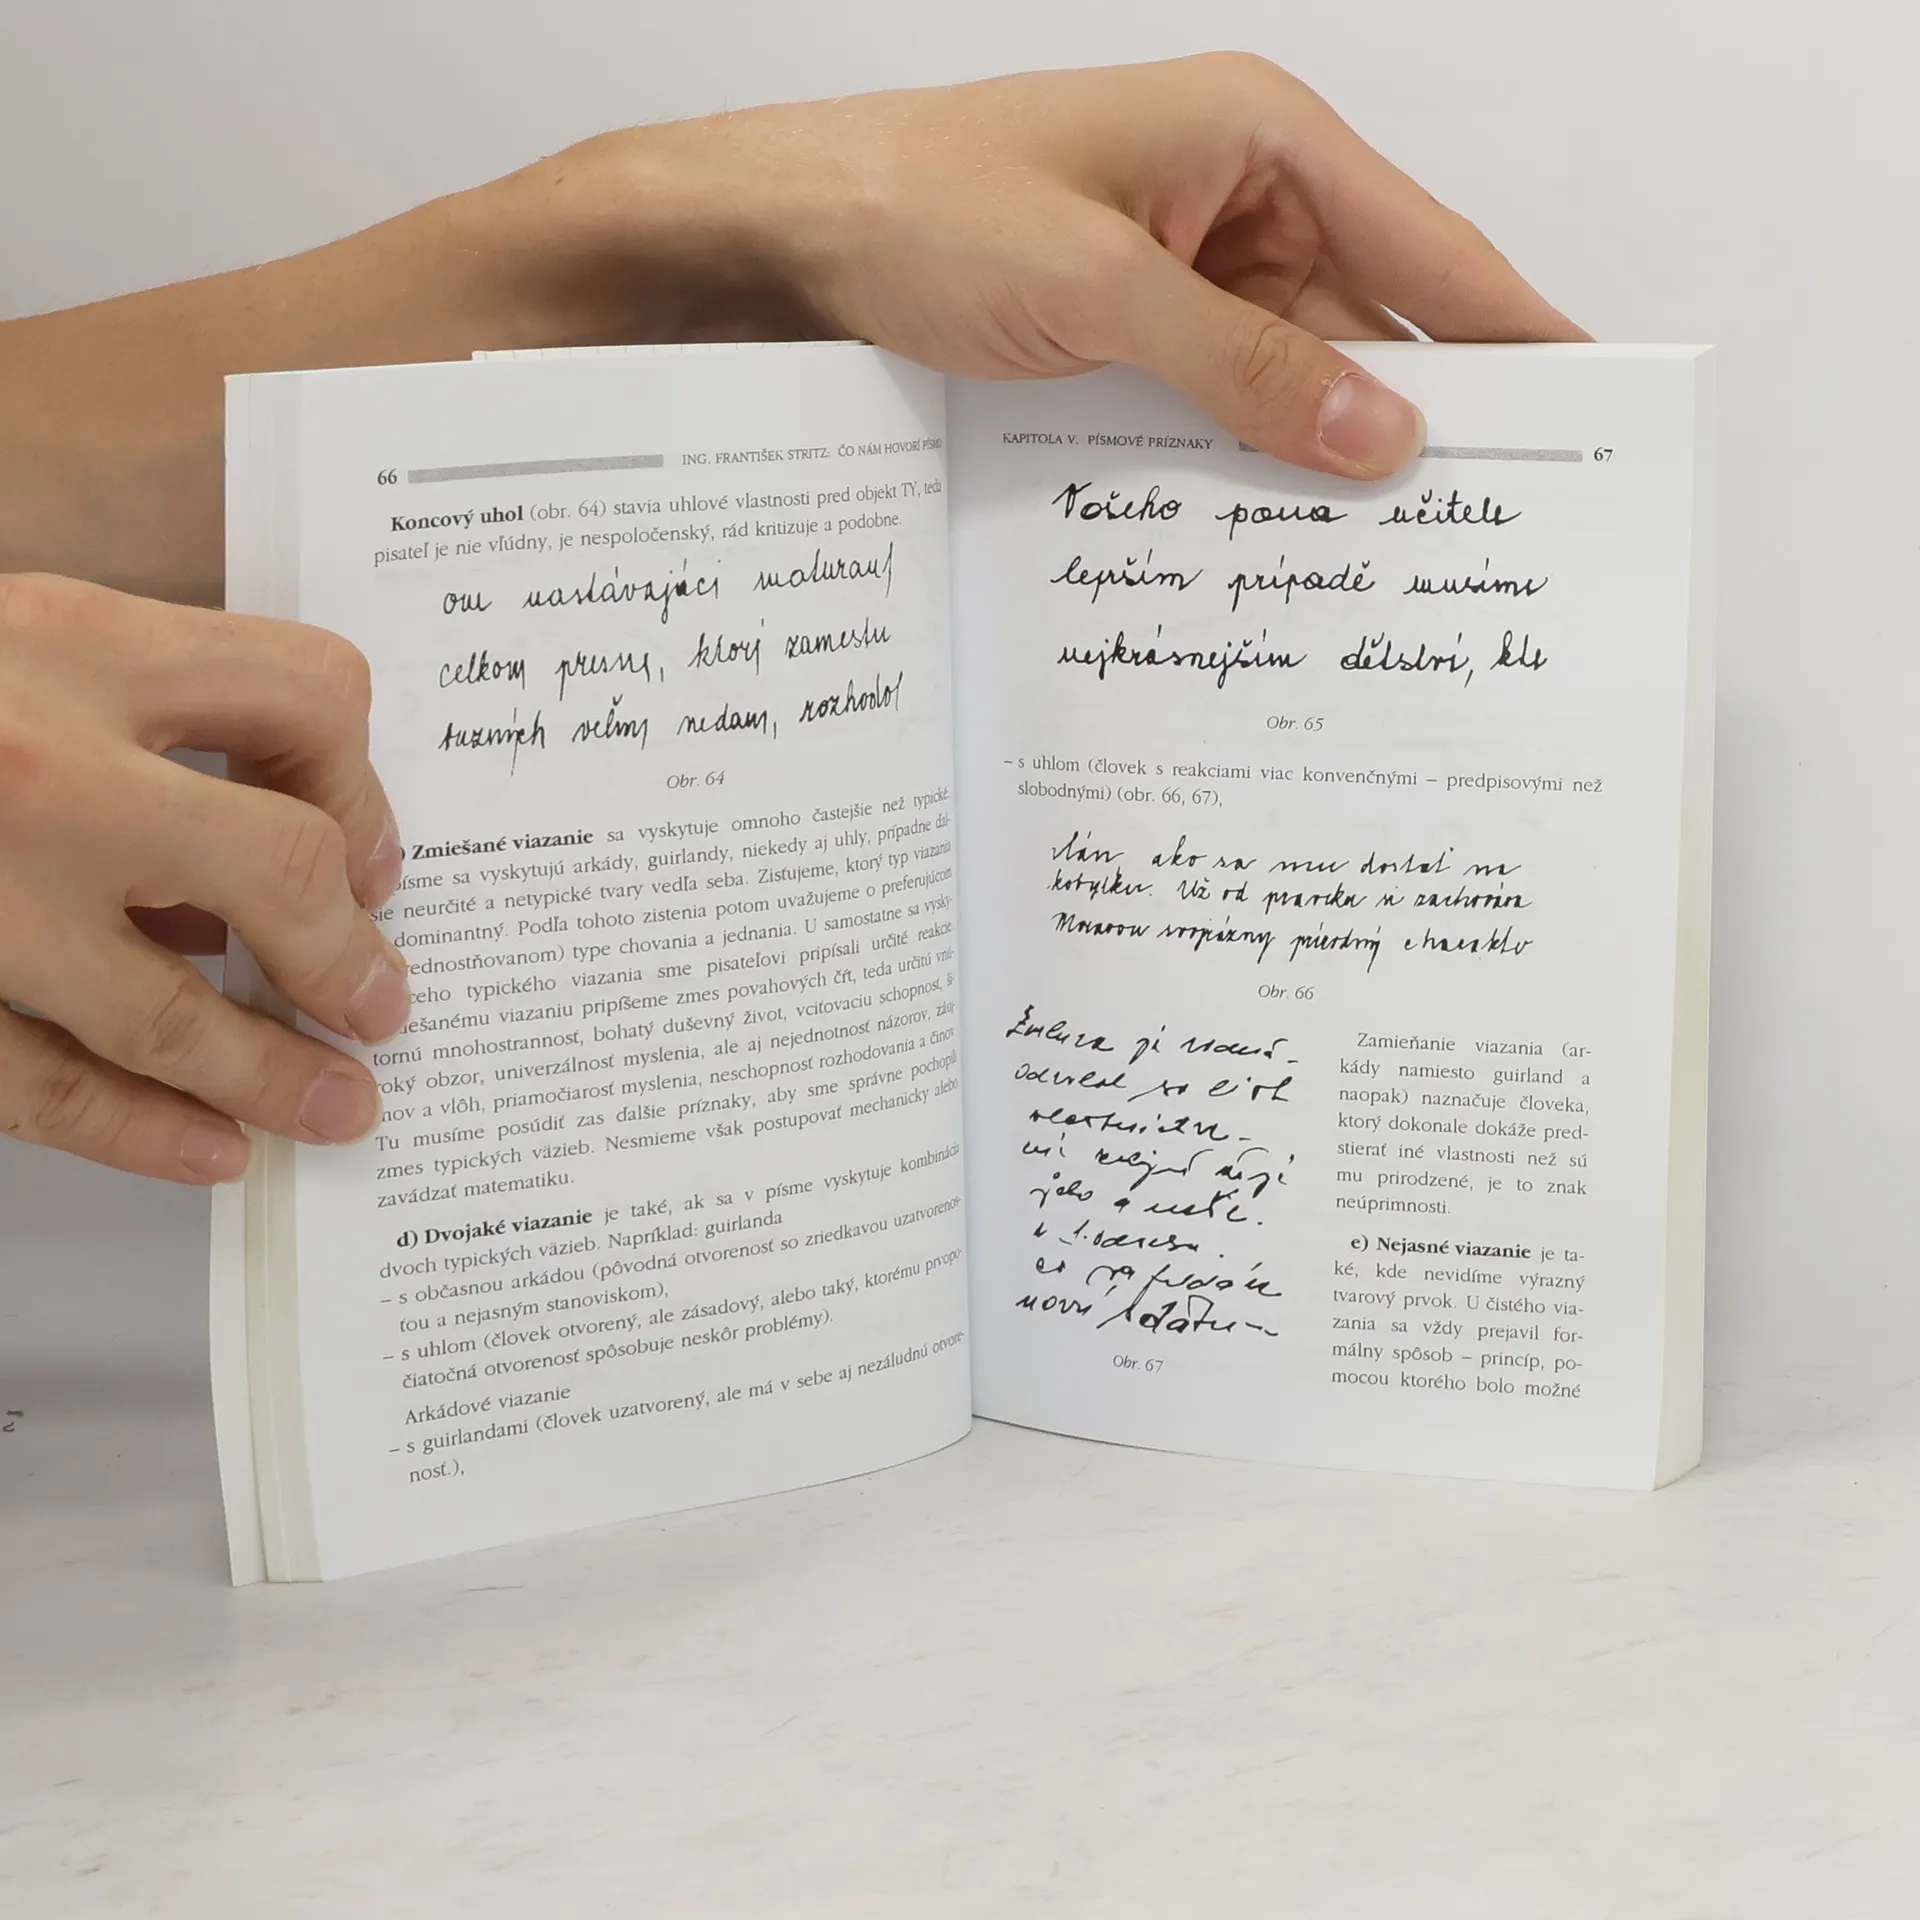 66 ING. FRANTIŠEK STRITZ: ČO NÁM HOVORÍ PÍSMO
Koncový uhol (obr. 64) stavia uhlové vlastnosti pred objekt TY, teda
pisateľ je nie vľúdny, je nespoločenský, rád kritizuje a podobne.
nastávajúci
celkom presne, ktorý zamestu
veľmi nedam, rozhodol
Obr. 64
) Zmiešané viazanie sa vyskytuje omnoho častejšie než typické.
písme sa vyskytujú arkády, guirlandy, niekedy aj uhly, prípadne ďal-
šie neurčité a netypické tvary vedľa seba. Zisťujeme, ktorý typ viazania
dominantný. Podľa tohoto zistenia potom uvažujeme o preferujúcom
rednostňovanom) type chovania a jednania. U samostatne sa vysky-
ceho typického viazania sme pisateľovi pripísali určité reakcie.
iešanému viazaniu pripíšeme zmes povahových čŕt, teda určitú vnú-
tornú mnohostrannosť, bohatý duševný život, vciťovaciu schopnosť, ši-
roký obzor, univerzálnosť myslenia, ale aj nejednotnosť názorov, záuj-
mov a vlôh, priamočiarosť myslenia, neschopnosť rozhodovania a činov.
Tu musíme posúdiť zas ďalšie príznaky, aby sme správne pochopili
zmes typických väzieb. Nesmieme však postupovať mechanicky alebo
zavádzať matematiku.
d) Dvojaké viazanie je také, ak sa v písme vyskytuje kombinácia
dvoch typických väzieb. Napríklad: guirlanda
– s občasnou arkádou (pôvodná otvorenosť so zriedkavou uzatvorenos-
ťou a nejasným stanoviskom),
– s uhlom (človek otvorený, ale zásadový, alebo taký, ktorému prvopo-
čiatočná otvorenosť spôsobuje neskôr problémy).
Arkádové viazanie
– s guirlandami (človek uzatvorený, ale má v sebe aj nezáludnú otvore-
nosť.),
KAPITOLA V. PÍSMOVÉ PRÍZNAKY 67
Vašeho pana učitele
lepším prípadě musíme
nejkrásnejším dětství, kde
Obr. 65
– s uhlom (človek s reakciami viac konvenčnými – predpisovými než
slobodnými) (obr. 66, 67),
ako sa mu dostal na
kobylku. Už od praveku si zachováva
svojrázny prírodný charakter
Obr. 66
Obr. 67
Zamieňanie viazania (ar-
kády namiesto guirland a
naopak) naznačuje človeka,
ktorý dokonale dokáže pred-
stierať iné vlastnosti než sú
mu prirodzené, je to znak
neúprimnosti.
e) Nejasné viazanie je ta-
ké, kde nevidíme výrazný
tvarový prvok. U čistého via-
zania sa vždy prejavil for-
málny spôsob – princíp, po-
mocou ktorého bolo možné